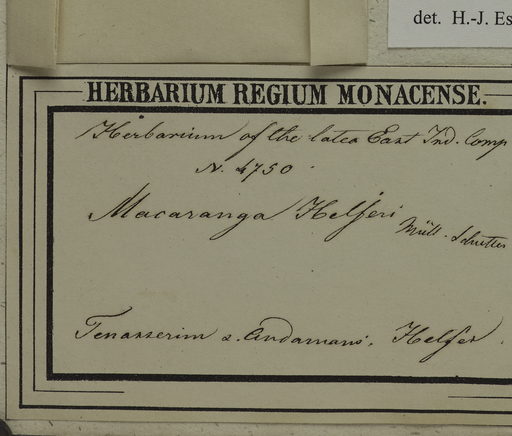 det. H.-J. Es
HERBARIUM REGIUM MONACENSE.
Herbarium of the latea East Ind. Comp
N. 4750
Macaranga Helferi Müll.
Tenasserim &. Andamans. Helfer.